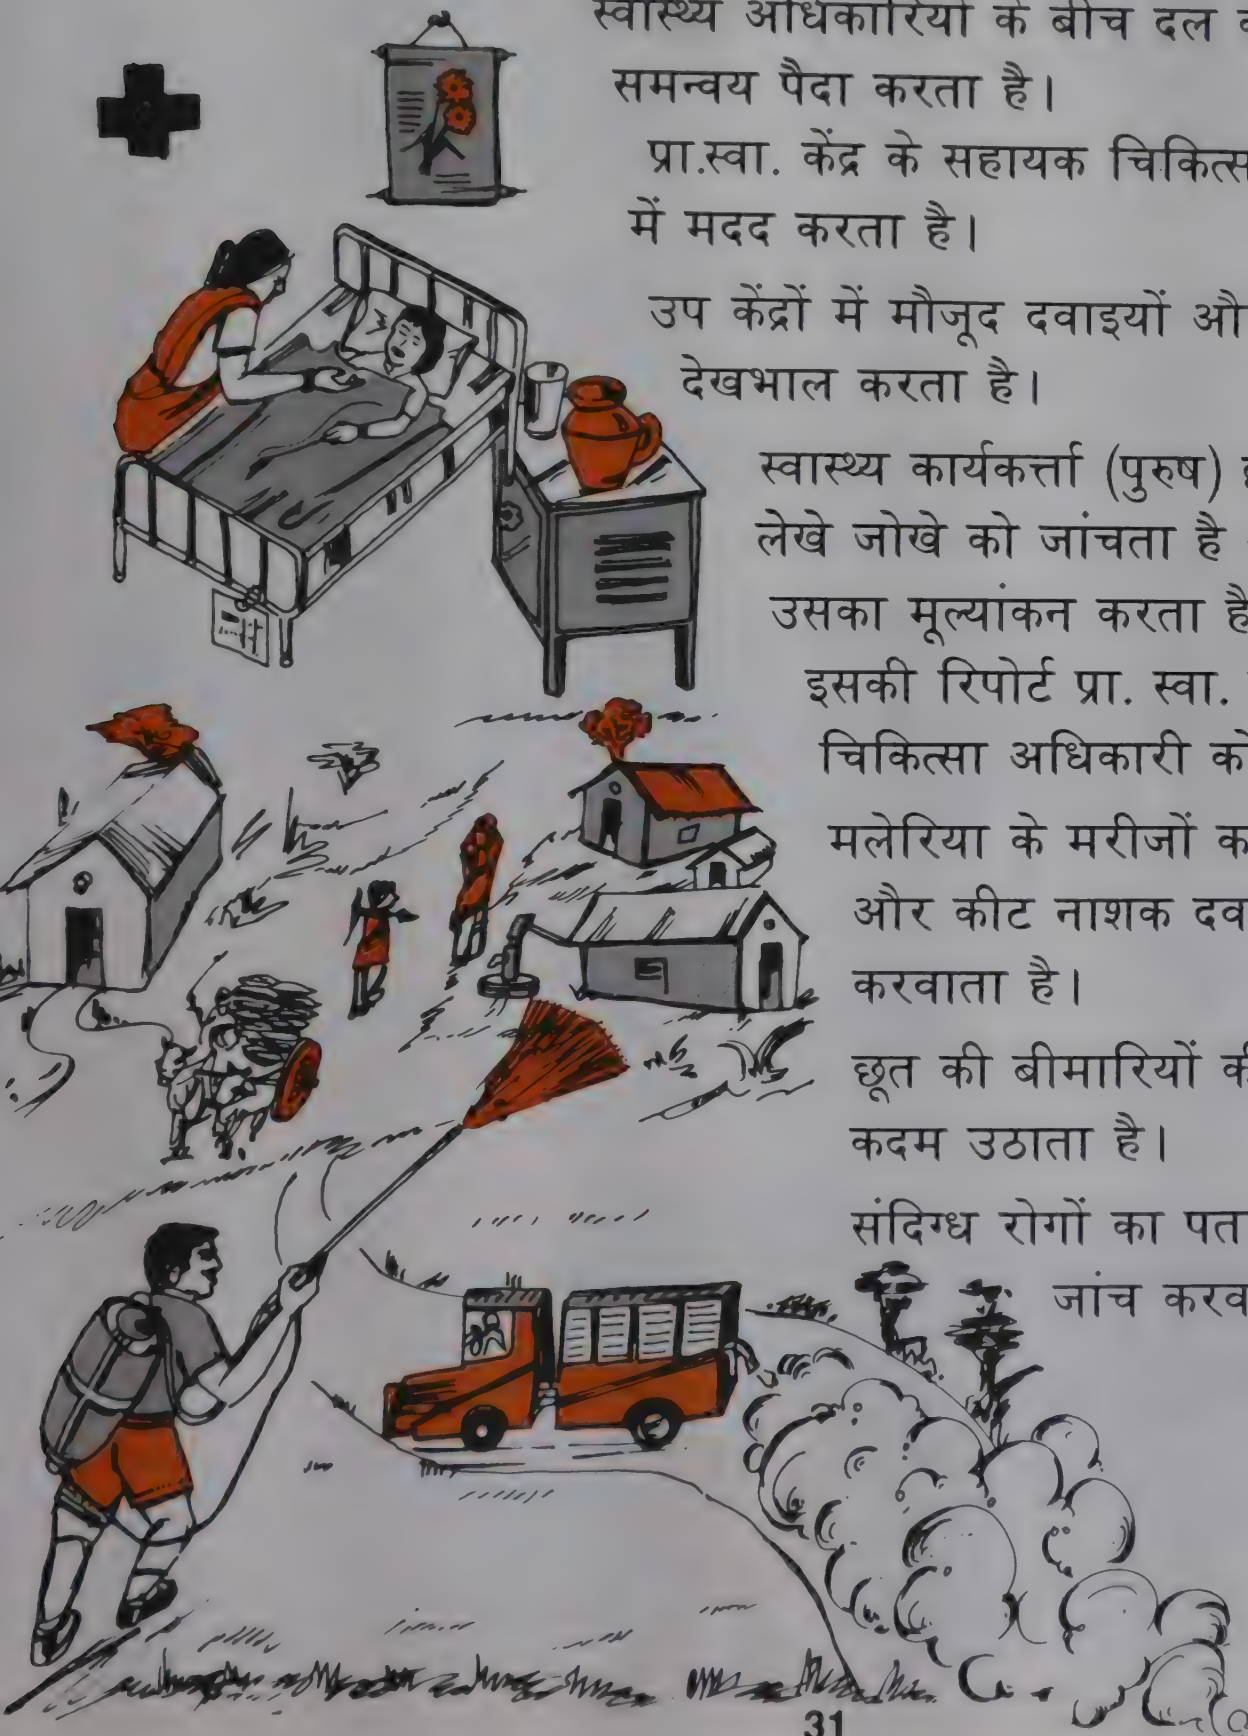 स्वास्थ्य अधिकारियों के बीच दल
समन्वय पैदा करता है।
प्रा.स्वा. केंद्र के सहायक
में मदद करता है।
उप केंद्रों में मौजूद दवाइयों
देखभाल करता है।
स्वास्थ्य कार्यकर्त्ता (पुरुष)
लेखे जोखे को जांचता है
उसका मूल्यांकन करता है
इसकी रिपोर्ट प्रा. स्वा.
चिकित्सा अधिकारी को
मलेरिया के मरीजों
और कीट नाशक
करवाता है।
छूत की बीमारियों की
कदम उठाता है।
संदिग्ध रोगों का
जांच
31